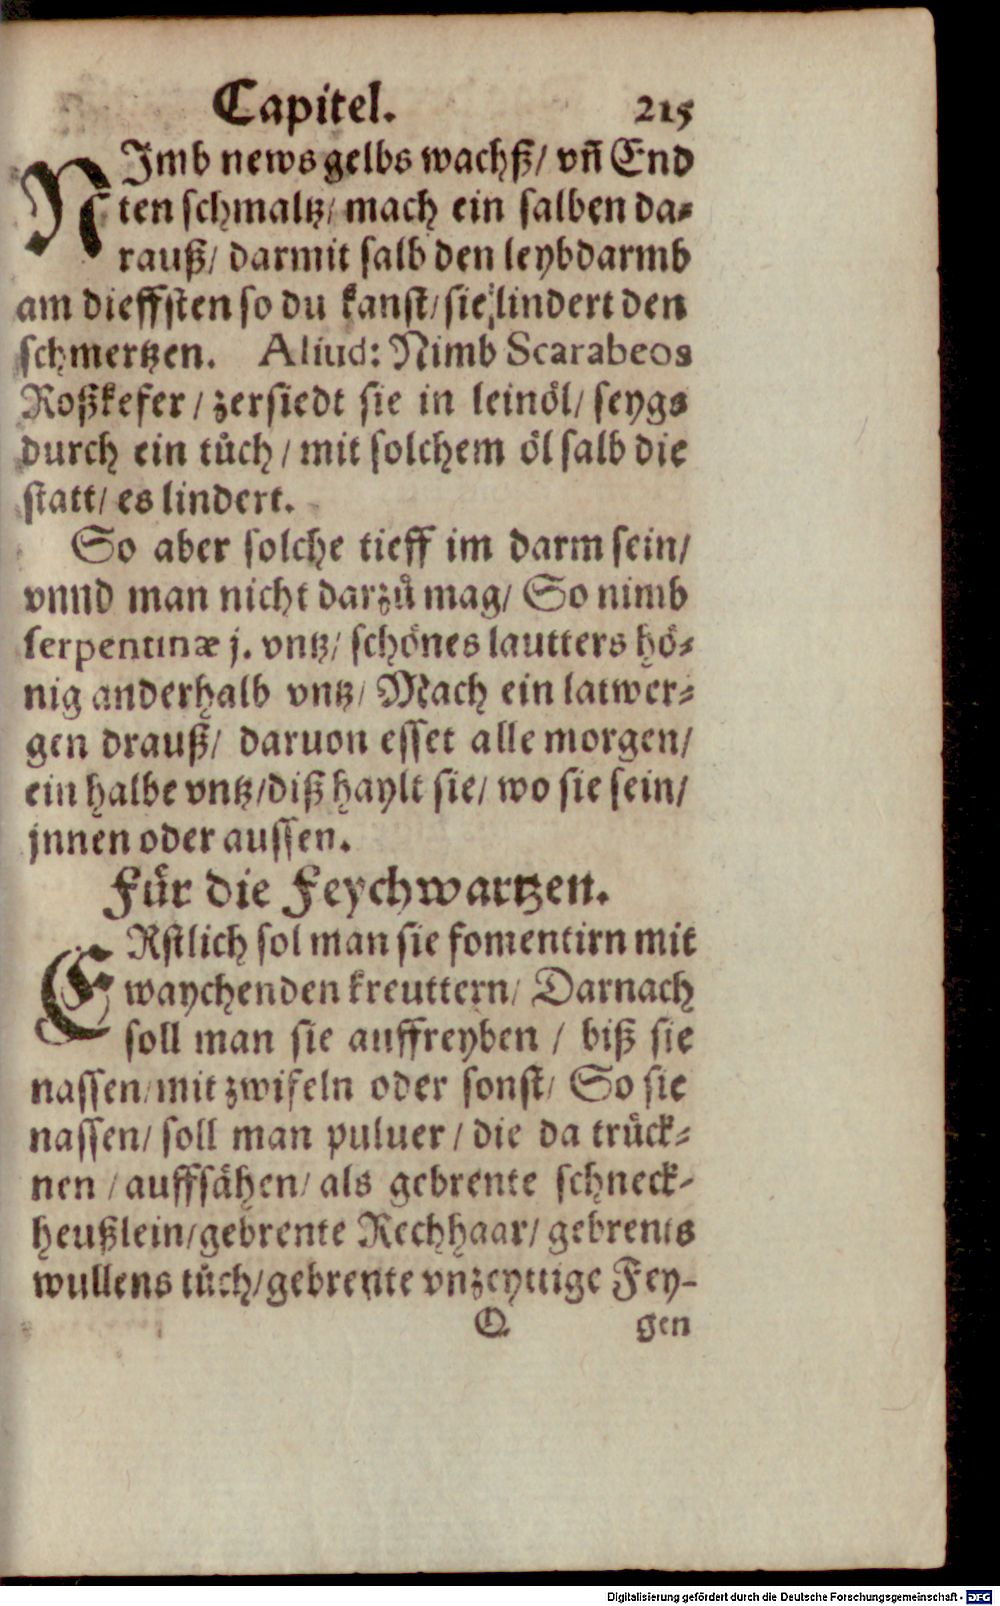 Capitel. 215
NJmb news gelbs wachß/ vñ End
ten schmaltz/ mach ein salben da⸗
rauß/ darmit salb den leybdarmb
am dieffsten so du kanst/ sie lindert den
schmertzen. Aliud: Nimb Scarabeos
Roßkefer/ zersiedt sie in leinöl/ seygs
durch ein tůch/ mit solchem öl salb die
statt/ es lindert.
So aber solche tieff im darm sein/
vnnd man nicht darzů mag/ So nimb
serpentinæ j. vntz/ schönes lautters hö⸗
nig anderhalb vntz/ Mach ein latwer⸗
gen drauß/ daruon esset alle morgen/
ein halbe vntz/ diß haylt sie/ wo sie sein/
jnnen oder aussen.
Für die Feychwartzen.
ERstlich sol man sie fomentirn mit
waychenden kreuttern/ Darnach
soll man sie auffreyben/ biß sie
nassen/ mit zwifeln oder sonst/ So sie
nassen/ soll man puluer/ die da trück⸗
nen/ auffsähen/ als gebrente schneck⸗
heußlein/ gebrente Rechhaar/ gebrents
wullens tůch/ gebrente vnzeyttige Fey-
O gen
Digitalisierung gefördert durch die Deutsche Forschungsgemeinschaft - DFG